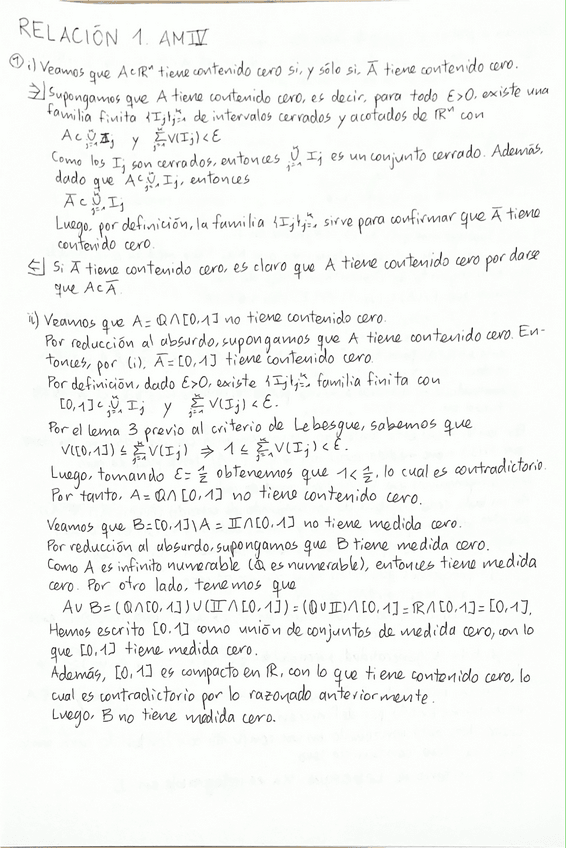 RELACIÓN 1. AMIV
① i) Veamos que A⊂ℝⁿ tiene contenido cero si, y sólo si, A̅ tiene contenido cero.
⇒] Supongamos que A tiene contenido cero, es decir, para todo ε>0, existe una
familia finita {Iⱼ}ⱼ₌₁ᵐ de intervalos cerrados y acotados de ℝⁿ con
A⊂ ⋃ⱼ₌₁ᵐ Iⱼ y ∑ⱼ₌₁ᵐ V(Iⱼ)<ε
Como los Iⱼ son cerrados, entonces ⋃ⱼ₌₁ᵐ Iⱼ es un conjunto cerrado. Además,
dado que A⊂ ⋃ⱼ₌₁ᵐ Iⱼ, entonces
A̅ ⊂ ⋃ⱼ₌₁ᵐ Iⱼ
Luego, por definición, la familia {Iⱼ}ⱼ₌₁ᵐ sirve para confirmar que A̅ tiene
contenido cero.
⇐] Si A̅ tiene contenido cero, es claro que A tiene contenido cero por darse
que A⊂A̅.
ii) Veamos que A=ℚ∩[0,1] no tiene contenido cero.
Por reducción al absurdo, supongamos que A tiene contenido cero. En-
tonces, por (i), A̅=[0,1] tiene contenido cero.
Por definición, dado ε>0, existe {Iⱼ}ⱼ₌₁ᵐ familia finita con
[0,1]⊂ ⋃ⱼ₌₁ᵐ Iⱼ y ∑ⱼ₌₁ᵐ V(Iⱼ)<ε.
Por el lema 3 previo al criterio de Lebesgue, sabemos que
V([0,1]) ≤ ∑ⱼ₌₁ᵐ V(Iⱼ) ⇒ 1 ≤ ∑ⱼ₌₁ᵐ V(Iⱼ)<ε.
Luego, tomando ε=1/2 obtenemos que 1<1/2, lo cual es contradictorio.
Por tanto, A=ℚ∩[0,1] no tiene contenido cero.
Veamos que B=[0,1]\A=𝕀∩[0,1] no tiene medida cero.
Por reducción al absurdo, supongamos que B tiene medida cero.
Como A es infinito numerable (ℚ es numerable), entonces tiene medida
cero. Por otro lado, tenemos que
A∪B=(ℚ∩[0,1])∪(𝕀∩[0,1])=(ℚ∪𝕀)∩[0,1]=ℝ∩[0,1]=[0,1].
Hemos escrito [0,1] como unión de conjuntos de medida cero, con lo
que [0,1] tiene medida cero.
Además, [0,1] es compacto en ℝ, con lo que tiene contenido cero, lo
cual es contradictorio por lo razonado anteriormente.
Luego, B no tiene medida cero.